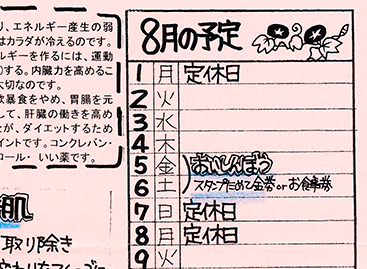 り、エネルギー産生の弱
はカラダが冷えるのです。
ルギーを作るには、運動
する。内臓力を高めるこ
大切なのです。
飲暴食をやめ、胃腸を元
して、肝臓の働きを高め
たが、ダイエットするため
イントです。コンクレバン・
ロール・いい薬です。
肌
取り除き
8月の予定
1 月 定休日
2 火
3 水
4 木
5 金 おいしんぼう
6 土 スタンプためて金券orお食事券
7 日 定休日
8 月 定休日
9 火